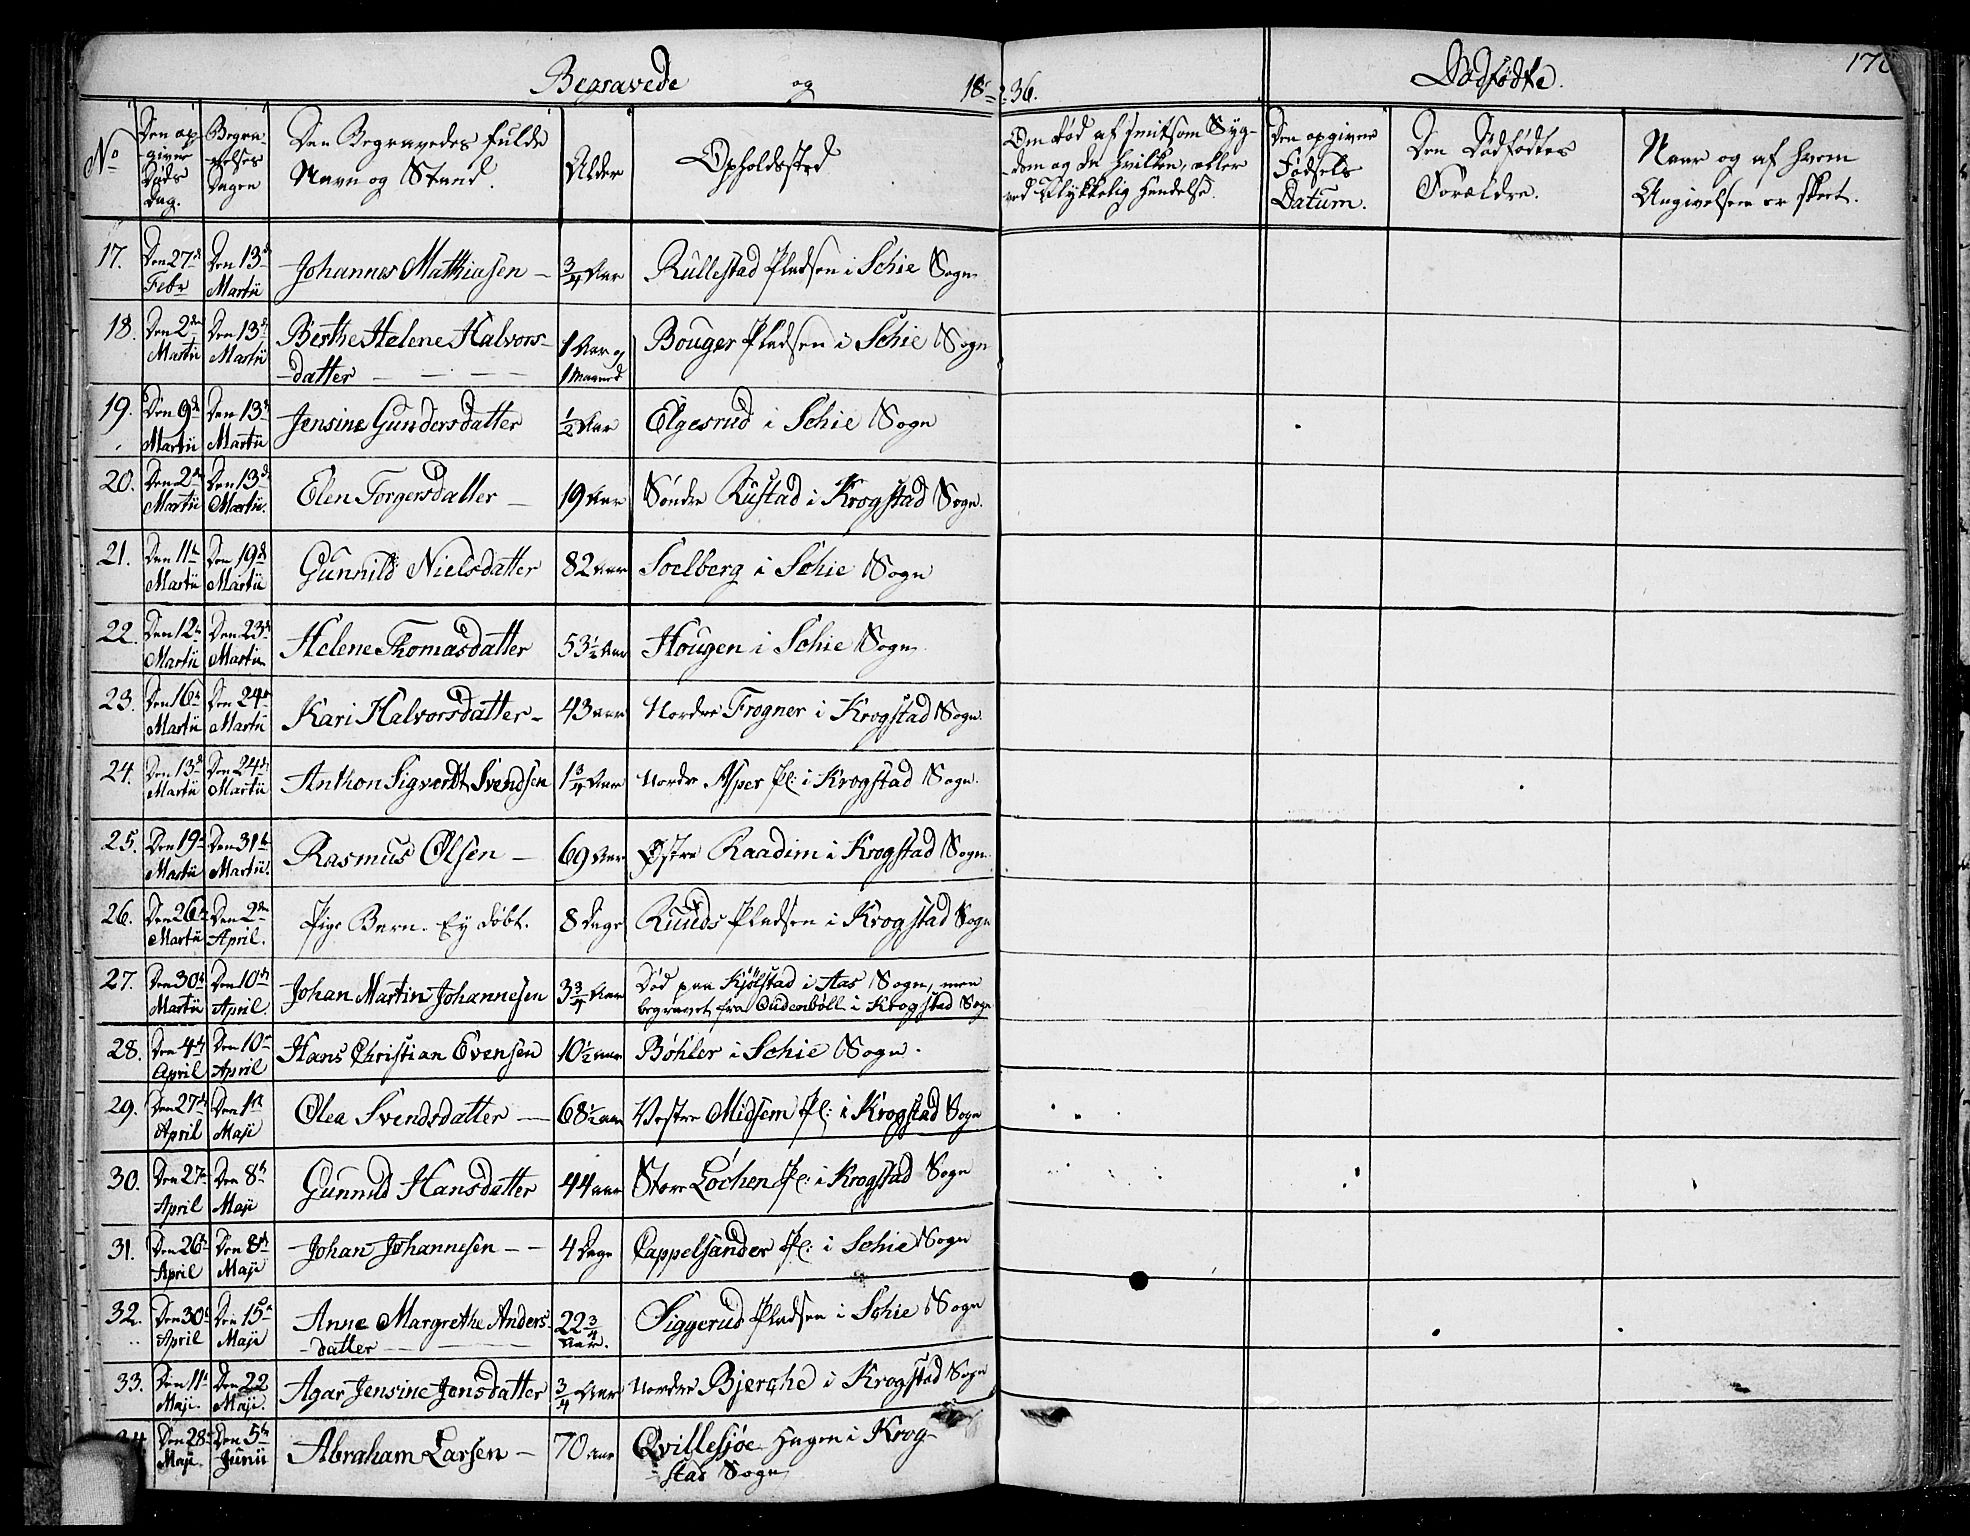 Begravede og 1836. Dødfødte. 170
No
Den op-
giver
Døds
Dag.
Begra-
velses
Dagen
Den Begravedes fulde
Navn og Stand.
Alder
Opholdssted
Om død af smitsom Syg-
dom og da hvilken, eller
ved Ulykkelig Hendelse.
Den opgivne
Fødsels
Datum.
Den Dødfødtes
Forældre.
Naar og af hvem
Angivelsen er skeet.
17. Den 27de Febr Den 13de Martii Johannes Mathiasen 3/4 Aar Rullestad Pladsen i Schie Sogn
18. Den 2den Martii Den 13de Martii Berthe Helene Halvors-
datter 1 Aar og 1 Maaned Bouger Pladsen i Schie Sogn
19. Den 9de Martii Den 13de Martii Jensine Gundersdatter 1/2 Aar Elgesrud i Schie Sogn
20. Den 2den Martii Den 13de Martii. Elen Torgersdatter 19 Aar Søndre Rustad i Krogstad Sogn.
21. Den 11te Martii Den 19de Martii Gunnild Nielsdatter 82 Aar Soelberg i Schie Sogn
22. Den 12te Martii Den 23de Martii Helene Thomasdatter 53 1/2 Aar Hougen i Schie Sogn.
23. Den 16de Martii Den 24de Martii Kari Halvorsdatter 43 aar Nordre Frogner i Krogstad Sogn.
24. Den 13de Martii Den 24de Martii Anthon Sigvardt Svendsen 1 3/4 Aar Nordre Asper Pl: i Krogstad Sogn.
25. Den 19de Martii Den 31te Martii. Rasmus Olsen 69 Aar Østre Raadim i Krogstad Sogn.
26. Den 26de Martii Den 2den April. Pige Barn. Ey døbt. 8 Dage Ruuds Pladsen i Krogstad Sogn
27. Den 30te Martii Den 10de April. Johan Martin Johannesen 3 3/4 Aar Død paa Kjölstad i Aas Sogn, men
begravet fra Oudenböll i Krogstad Sogn
28. Den 4de April Den 10de April Hans Christian Evensen 10 1/2 aar Bøhler i Schie Sogn.
29. Den 27de April Den 1te Maji Olea Svendsdatter 68 1/2 aar Vestre Midsem Pl: i Krogstad Sogn
30. Den 27de April Den 8de Maji Gunnild Hansdatter 44 aar Store Lochen Pl: i Krogstad Sogn
31. Den 26de April Den 8de Maji Johan Johannesen 4 Dage Cappelsander Pl: i Schie Sogn
32. Den 30te April Den 15de Maji Anne Margrethe Anders-
datter 22 3/4 Aar. Siggerud Pladsen i Schie Sogn
33. Den 11te Maji. Den 22 Maji. Agar Jensine Jensdatter 3/4 Aar Nordre Bjerche i Krogstad Sogn
34 Den 28de Maji. Den 5te Junii Abraham Larsen 70 aar Qvillesjøe Hagen i Krog-
stad Sogn